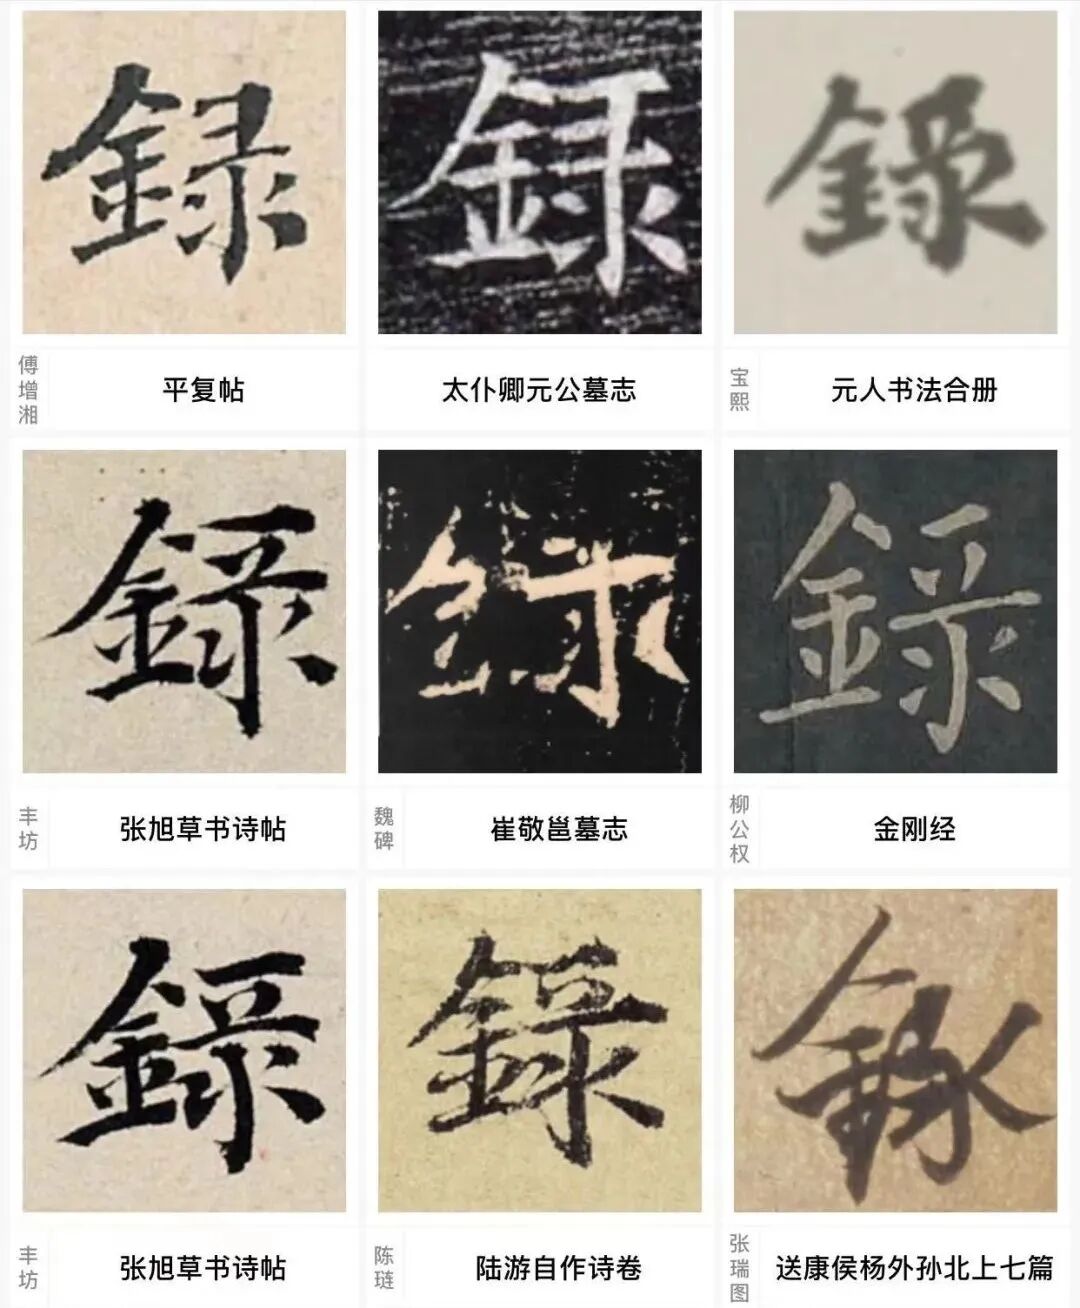 録
録
錄
傅增湘
平复帖
太仆卿元公墓志
宝熙
元人书法合册
錄
録
錄
丰坊
张旭草书诗帖
魏碑
崔敬邕墓志
柳公权
金刚经
錄
錄
錄
丰坊
张旭草书诗帖
陈琏
陆游自作诗卷
张瑞图
送康侯杨外孙北上七篇